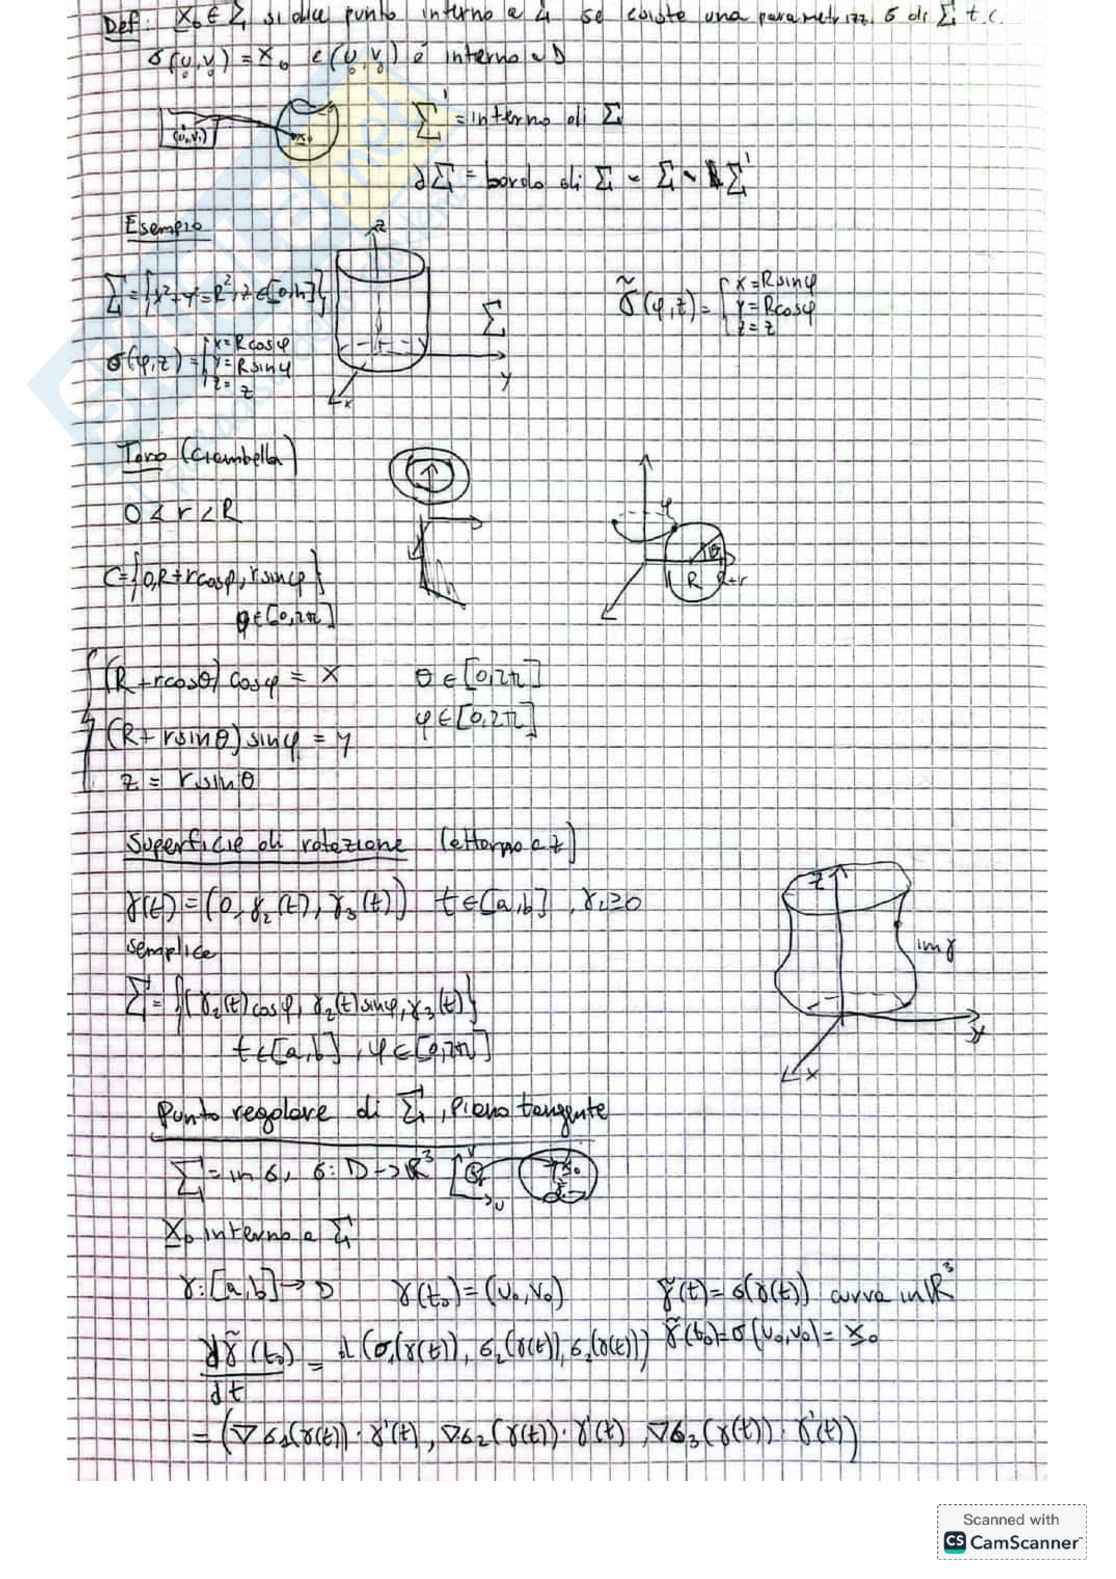 Def: x₀ ∈ Σ si dice punto interno a Σ se esiste una parametrizz. σ di Σ t.c.
σ(u₀,v₀) = x₀ e (u₀,v₀) è interno a D
(u₀,v₀) x₀ Σ' = interno di Σ
∂Σ = bordo di Σ = Σ \ Σ'
Esempio
z
Σ = {x²+y²=R², z∈[0,h]} Σ
σ̃(φ,z) = { x=Rsinφ
y=Rcosφ
z=z
σ(φ,z) = { x=Rcosφ
y=Rsinφ
z=z
y
x
Toro (Ciambella)
0<r<R
φ
θ
R R+r
C={0,R+rcosφ, rsinφ}
θ∈[0,2π]
{ (R+rcosθ) cosφ = x θ∈[0,2π]
φ∈[0,2π]
(R+rsinθ) sinφ = y
z = rsinθ
Superficie di rotazione (attorno a z)
z
γ(t)=(0,γ₂(t),γ₃(t)) t∈[a,b], γ₂≥0
semplice
imγ
Σ={(γ₂(t)cosφ, γ₂(t)sinφ, γ₃(t)}
t∈[a,b], φ∈[0,2π]
y
x
Punto regolare di Σ, piano tangente
Σ=im σ, σ: D→R³ v u x₀
x₀ interno a Σ
γ:[a,b]→D γ(t₀)=(u₀,v₀) γ̃(t)=σ(γ(t)) curva in R³
dγ̃(t₀)/dt = d(σ₁(γ(t)), σ₂(γ(t)), σ₃(γ(t))) γ̃(t₀)=σ(u₀,v₀)=x₀
= (∇σ₁(γ(t))·γ'(t), ∇σ₂(γ(t))·γ'(t), ∇σ₃(γ(t))·γ'(t))
Scanned with
CS CamScanner